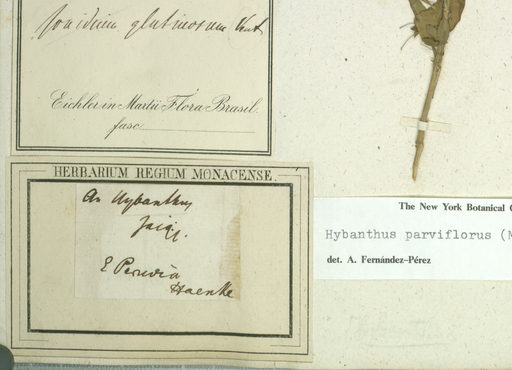 Ionidium glutinosum Vent
Eichler in Martii Flora Brasil.
fasc.
HERBARIUM REGIUM MONACENSE.
An Hybanthus
E Peruvia
Haenke
The New York Botanical G
Hybanthus parviflorus (M
det. A. Fernández-Pérez